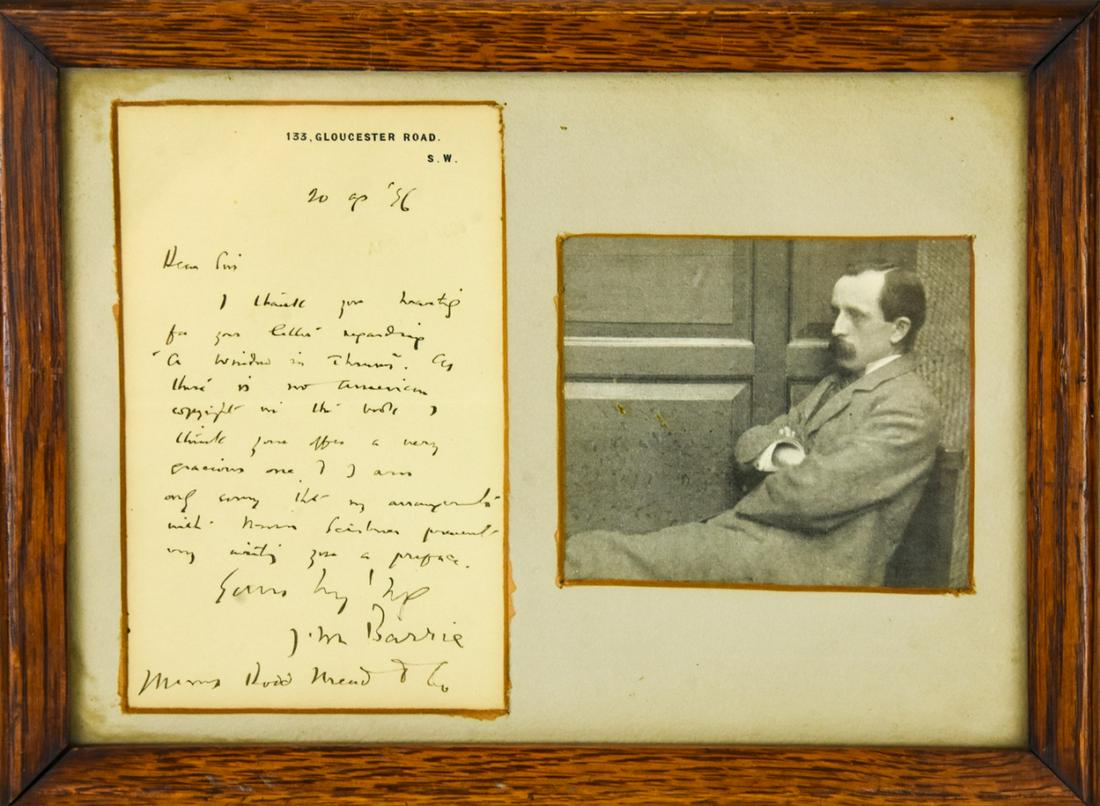 133, GLOUCESTER ROAD.
S.W.
20 ap '96
Dear Sirs
I thank you heartily
for your letter regarding
"A Window in Thrums". As
there is no American
copyright in the book I
think your offer a very
gracious one, & I am
only sorry that my arrangements
with Messrs Scribners prevent
my writing you a preface.
Yours
J. M Barrie
Messrs Dodd Mead & Co